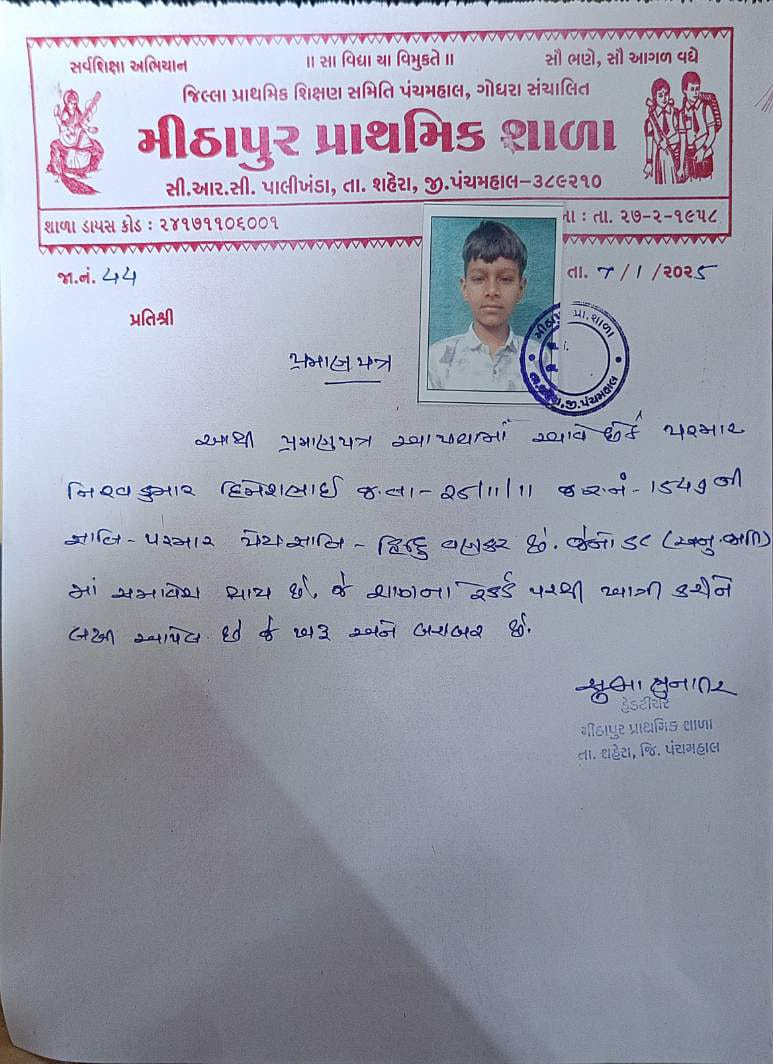 સર્વશિક્ષા અભિયાન ॥ સા વિદ્યા યા વિમુક્તે ॥ સૌ ભણે, સૌ આગળ વધે
જિલ્લા પ્રાથમિક શિક્ષણ સમિતિ પંચમહાલ, ગોધરા સંચાલિત
મીઠાપુર પ્રાથમિક શાળા
સી.આર.સી. પાલીખંડા, તા. શહેરા, જી.પંચમહાલ-૩૮૯૨૧૦
શાળા ડાયસ કોડ : ૨૪૧૭૧૧૦૬૦૦૧ ના : તા. ૨૭-૨-૧૯૫૮
જા.નં. 44 તા. 7/1/૨૦૨5
પ્રતિશ્રી
પ્રા.શાળા
જી.પંચમહાલ
પ્રમાણપત્ર
આથી પ્રમાણપત્ર આપવામાં આવે છે કે પરમાર
કુમાર જ.તા- 25/11/11 1549 ની
જાતિ - પરમાર પેટાજાતિ - હિન્દુ વણકર છે. જેનો (અનુ.જાતિ)
માં સમાવેશ થાય છે. જે શાળાના રેકર્ડ પરથી ખાત્રી કરીને
લખી આપેલ છે જે ખરૂ અને બરાબર છે.
હેડટીચર
મીઠાપુર પ્રાથમિક શાળા
તા. શહેરા, જિ. પંચમહાલ